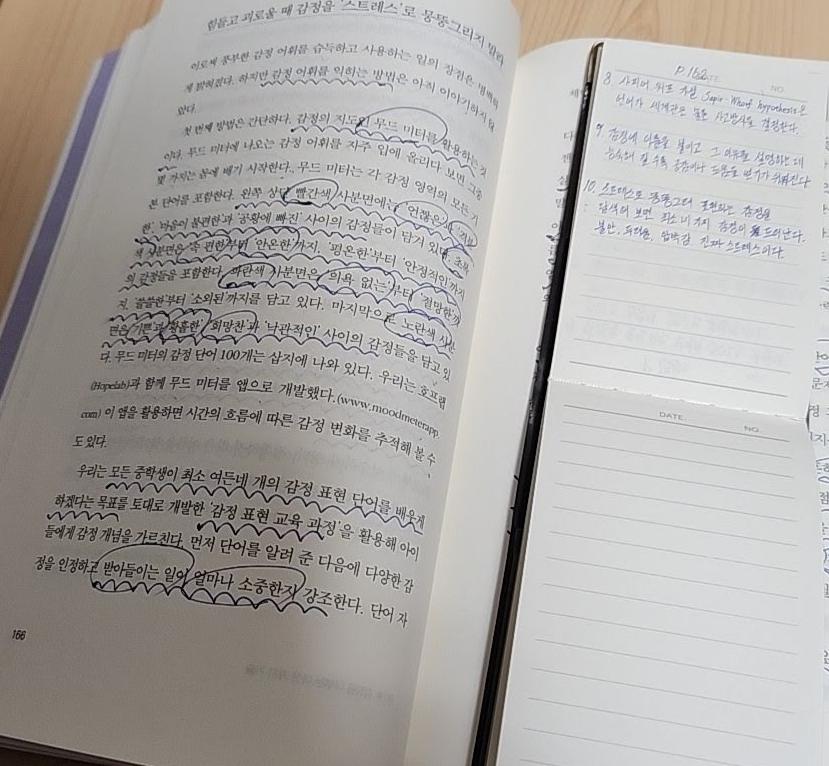 힘들고 괴로울 때 감정을 '스트레스'로 뭉뚱그리지 말라
이로써 풍부한 감정 어휘를 습득하고 사용하는 일의 장점은 명백하
게 밝혀졌다. 하지만 감정 어휘를 익히는 방법은 아직 이야기하지 않
았다.
첫 번째 방법은 간단하다. 감정의 지도인 무드 미터를 활용하는 것
이다. 무드 미터에 나오는 감정 어휘를 자주 입에 올리다 보면 그중
몇 가지는 몸에 배기 시작한다. 무드 미터는 각 감정 영역의 모든 기
본 단어를 포함한다. 왼쪽 상단 빨간색 사분면에는 '언짢은'과
한', '마음이 불편한'과 '공황에 빠진' 사이의 감정들이 담겨 있다. 초록
색 사분면은 '속 편한'부터 '안온한'까지, '평온한'부터 '안정적인'까지
의 감정들을 포함한다. 파란색 사분면은 '의욕 없는'부터 '절망한'까
지, '쓸쓸한'부터 '소외된'까지를 담고 있다. 마지막으로 노란색 사분
면은 '기쁜'과 '황홀한', '희망찬'과 '낙관적인' 사이의 감정들을 담고 있
다. 무드 미터의 감정 단어 100개는 삽지에 나와 있다. 우리는 호프랩
(Hopelab)과 함께 무드 미터를 앱으로 개발했다.(www.moodmeterapp.
com) 이 앱을 활용하면 시간의 흐름에 따른 감정 변화를 추적해 볼 수
도 있다.
우리는 모든 중학생이 최소 여든네 개의 감정 표현 단어를 배웠게
하겠다는 목표를 토대로 개발한 '감정 표현 교육 과정'을 활용해 아이
들에게 감정 개념을 가르친다. 먼저 단어를 알려 준 다음에 다양한 감
정을 인정하고 받아들이는 일이 얼마나 소중한지 강조한다. 단어 자
166
P.162
DATE.
NO.
8. 사피어 워프 가설 Sapir-Whorf hypothesis은
언어가 세계관은 물론 사고방식도 결정한다.
9. 감정에 이름을 붙이고 그 이유를 설명하는 데
능숙해 질 수록 공감이나 도움을 받기가 쉬워진다
10. 스트레스로 뭉뚱그려 표현되는 감정을
탐색해 보면 최소 네 가지 감정이 드러난다.
불안, 두려움, 압박감 진짜 스트레스이다.
DATE.
NO.